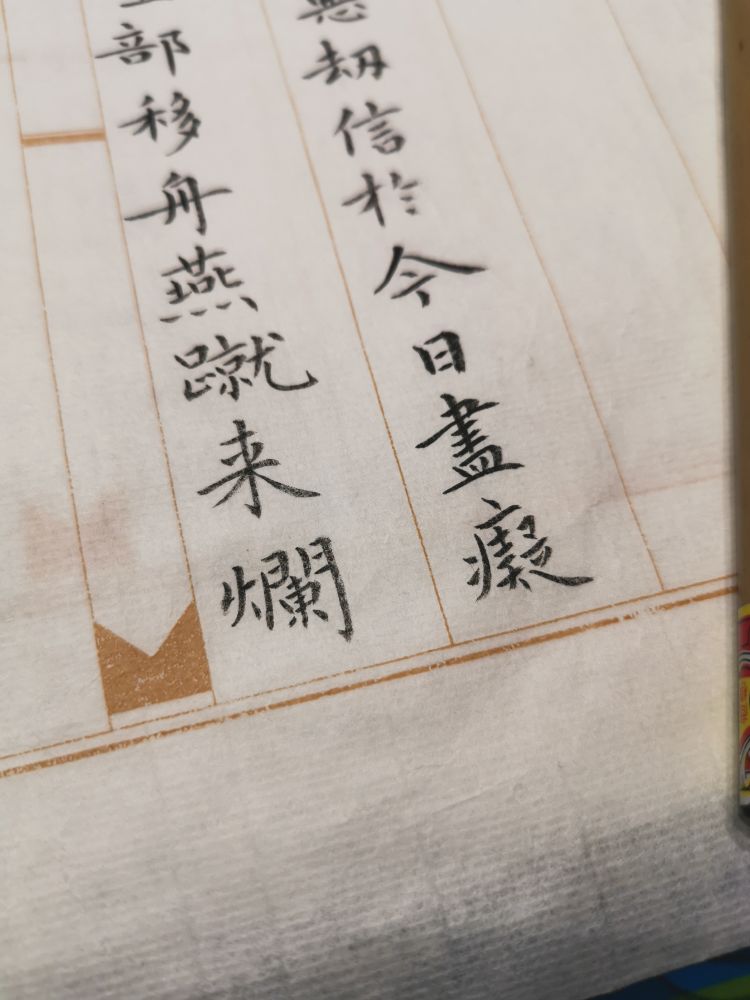 刼信於今日盡癡
部移舟燕蹴来爛